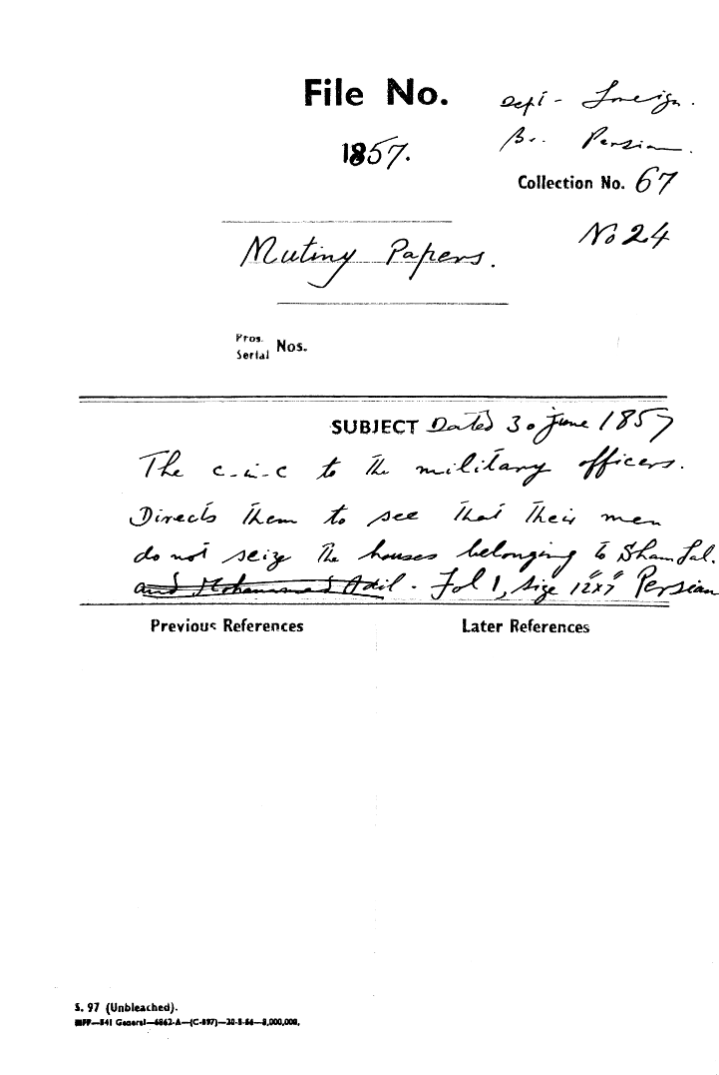 File No.
Dept - Foreign.
1857.
Br. Persian.
Collection No. 67
No 24
Mutiny Papers.
Pros.
Serial Nos.
SUBJECT Dated 30 June 1857
The C-in-C to the military officers.
Directs them to see that their men
do not seize the houses belonging to Sham Lal.
and Mohammad Adil - Fol 1, size 12"x7" Persian
Previous References Later References
S. 97 (Unbleached).
General—6862-A—(C-897)—20-8-56—8,000,000.